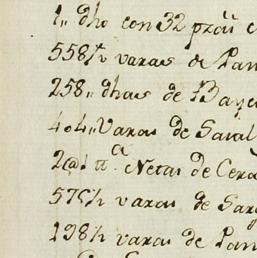 1,, dho con 32 pzãs c
558½ varas de Pan
258,, dhas de Baye
404,, Varas de Sayal
2@1 tt.ª Netas de Cera
575½ varas de Sarg
198½ varas de Pan